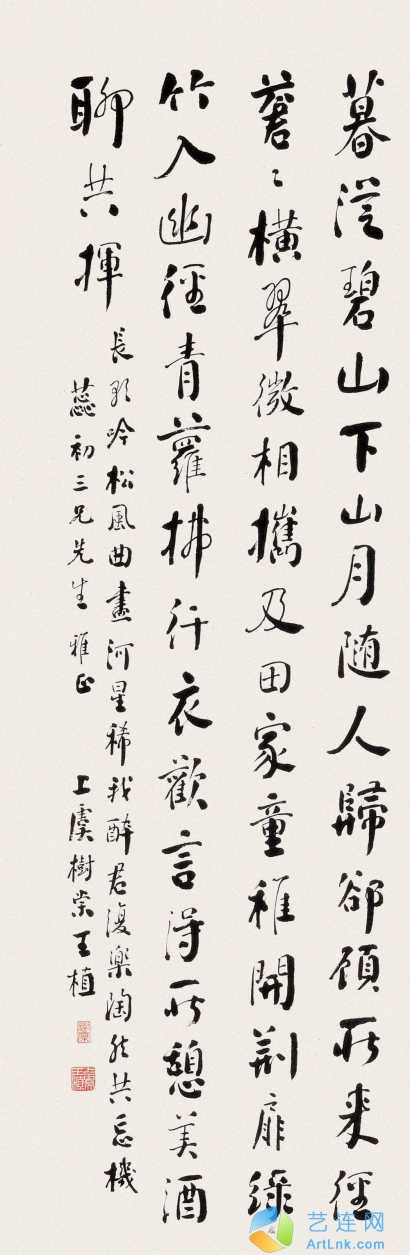 暮從碧山下山月随人歸郤顧所来徑
蒼〻橫翠微相攜及田家童稚開荆扉綠
竹入幽徑青蘿拂行衣歡言得所憩美酒
聊共揮
長歌吟松風曲盡河星稀我醉君復樂陶然共忘機
蕊初三兄先生雅正
上虞樹棠王植
艺连网
ArtLnk.com